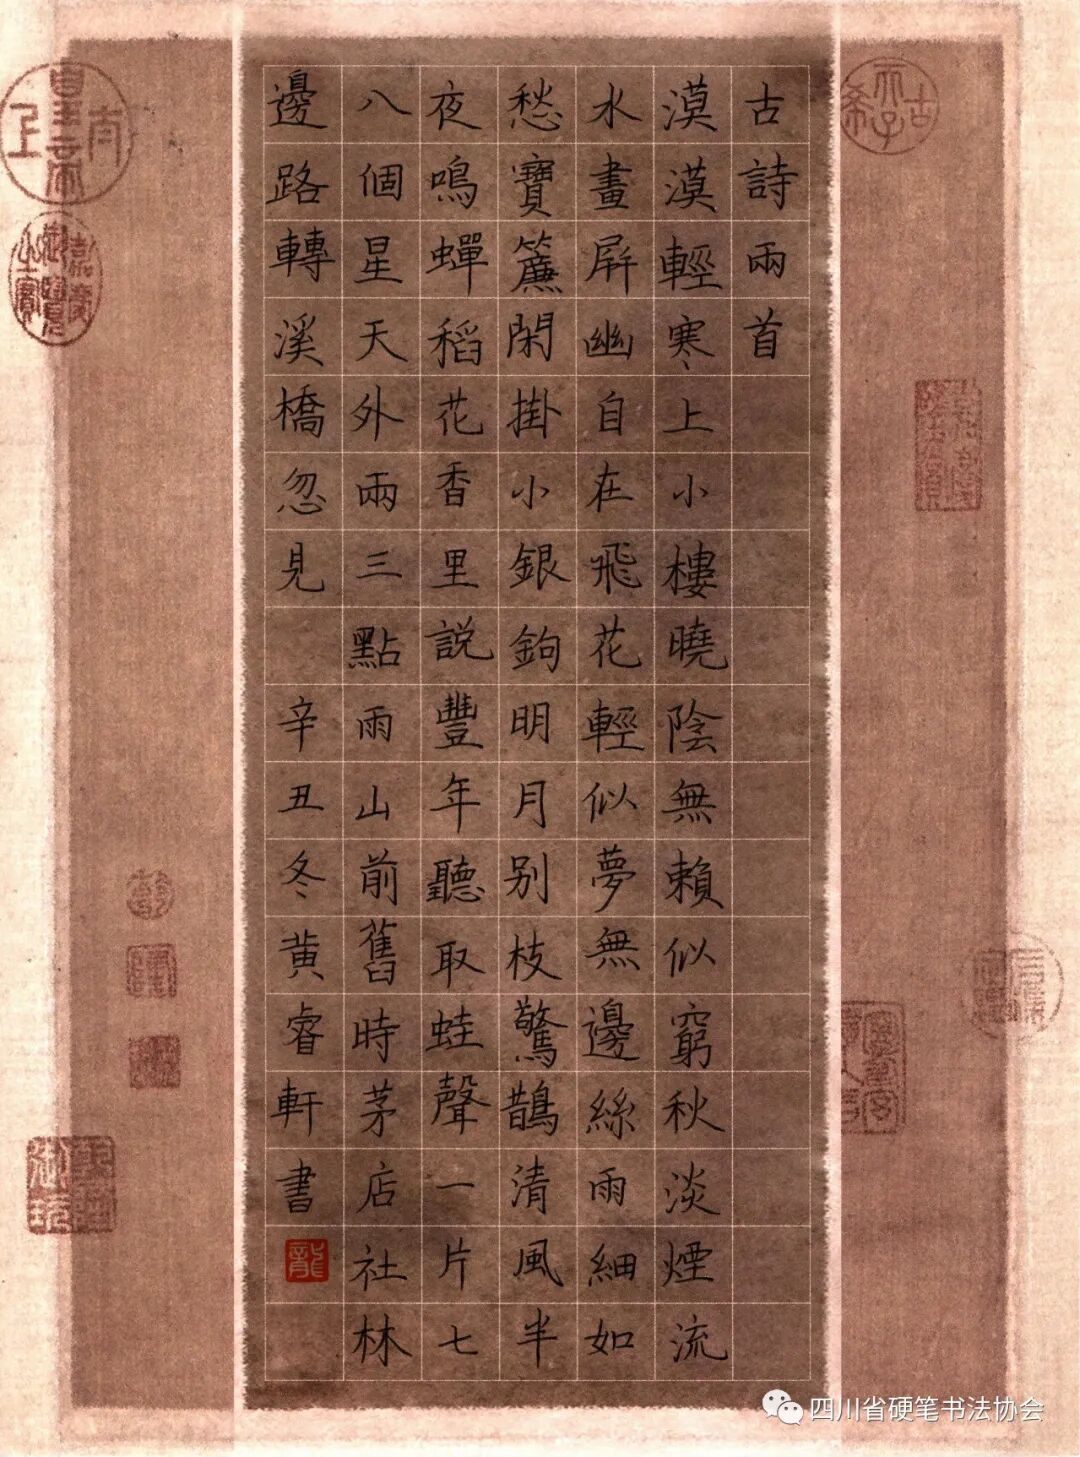 古詩兩首
漠漠輕寒上小樓曉陰無賴似窮秋淡煙流
水畫屏幽自在飛花輕似夢無邊絲雨細如
愁寶簾閑掛小銀鉤明月别枝驚鵲清風半
夜鳴蟬稻花香里説豐年聽取蛙聲一片七
八個星天外兩三點雨山前舊時茅店社林
邊路轉溪橋忽見
辛丑冬黄睿軒書
四川省硬笔书法协会